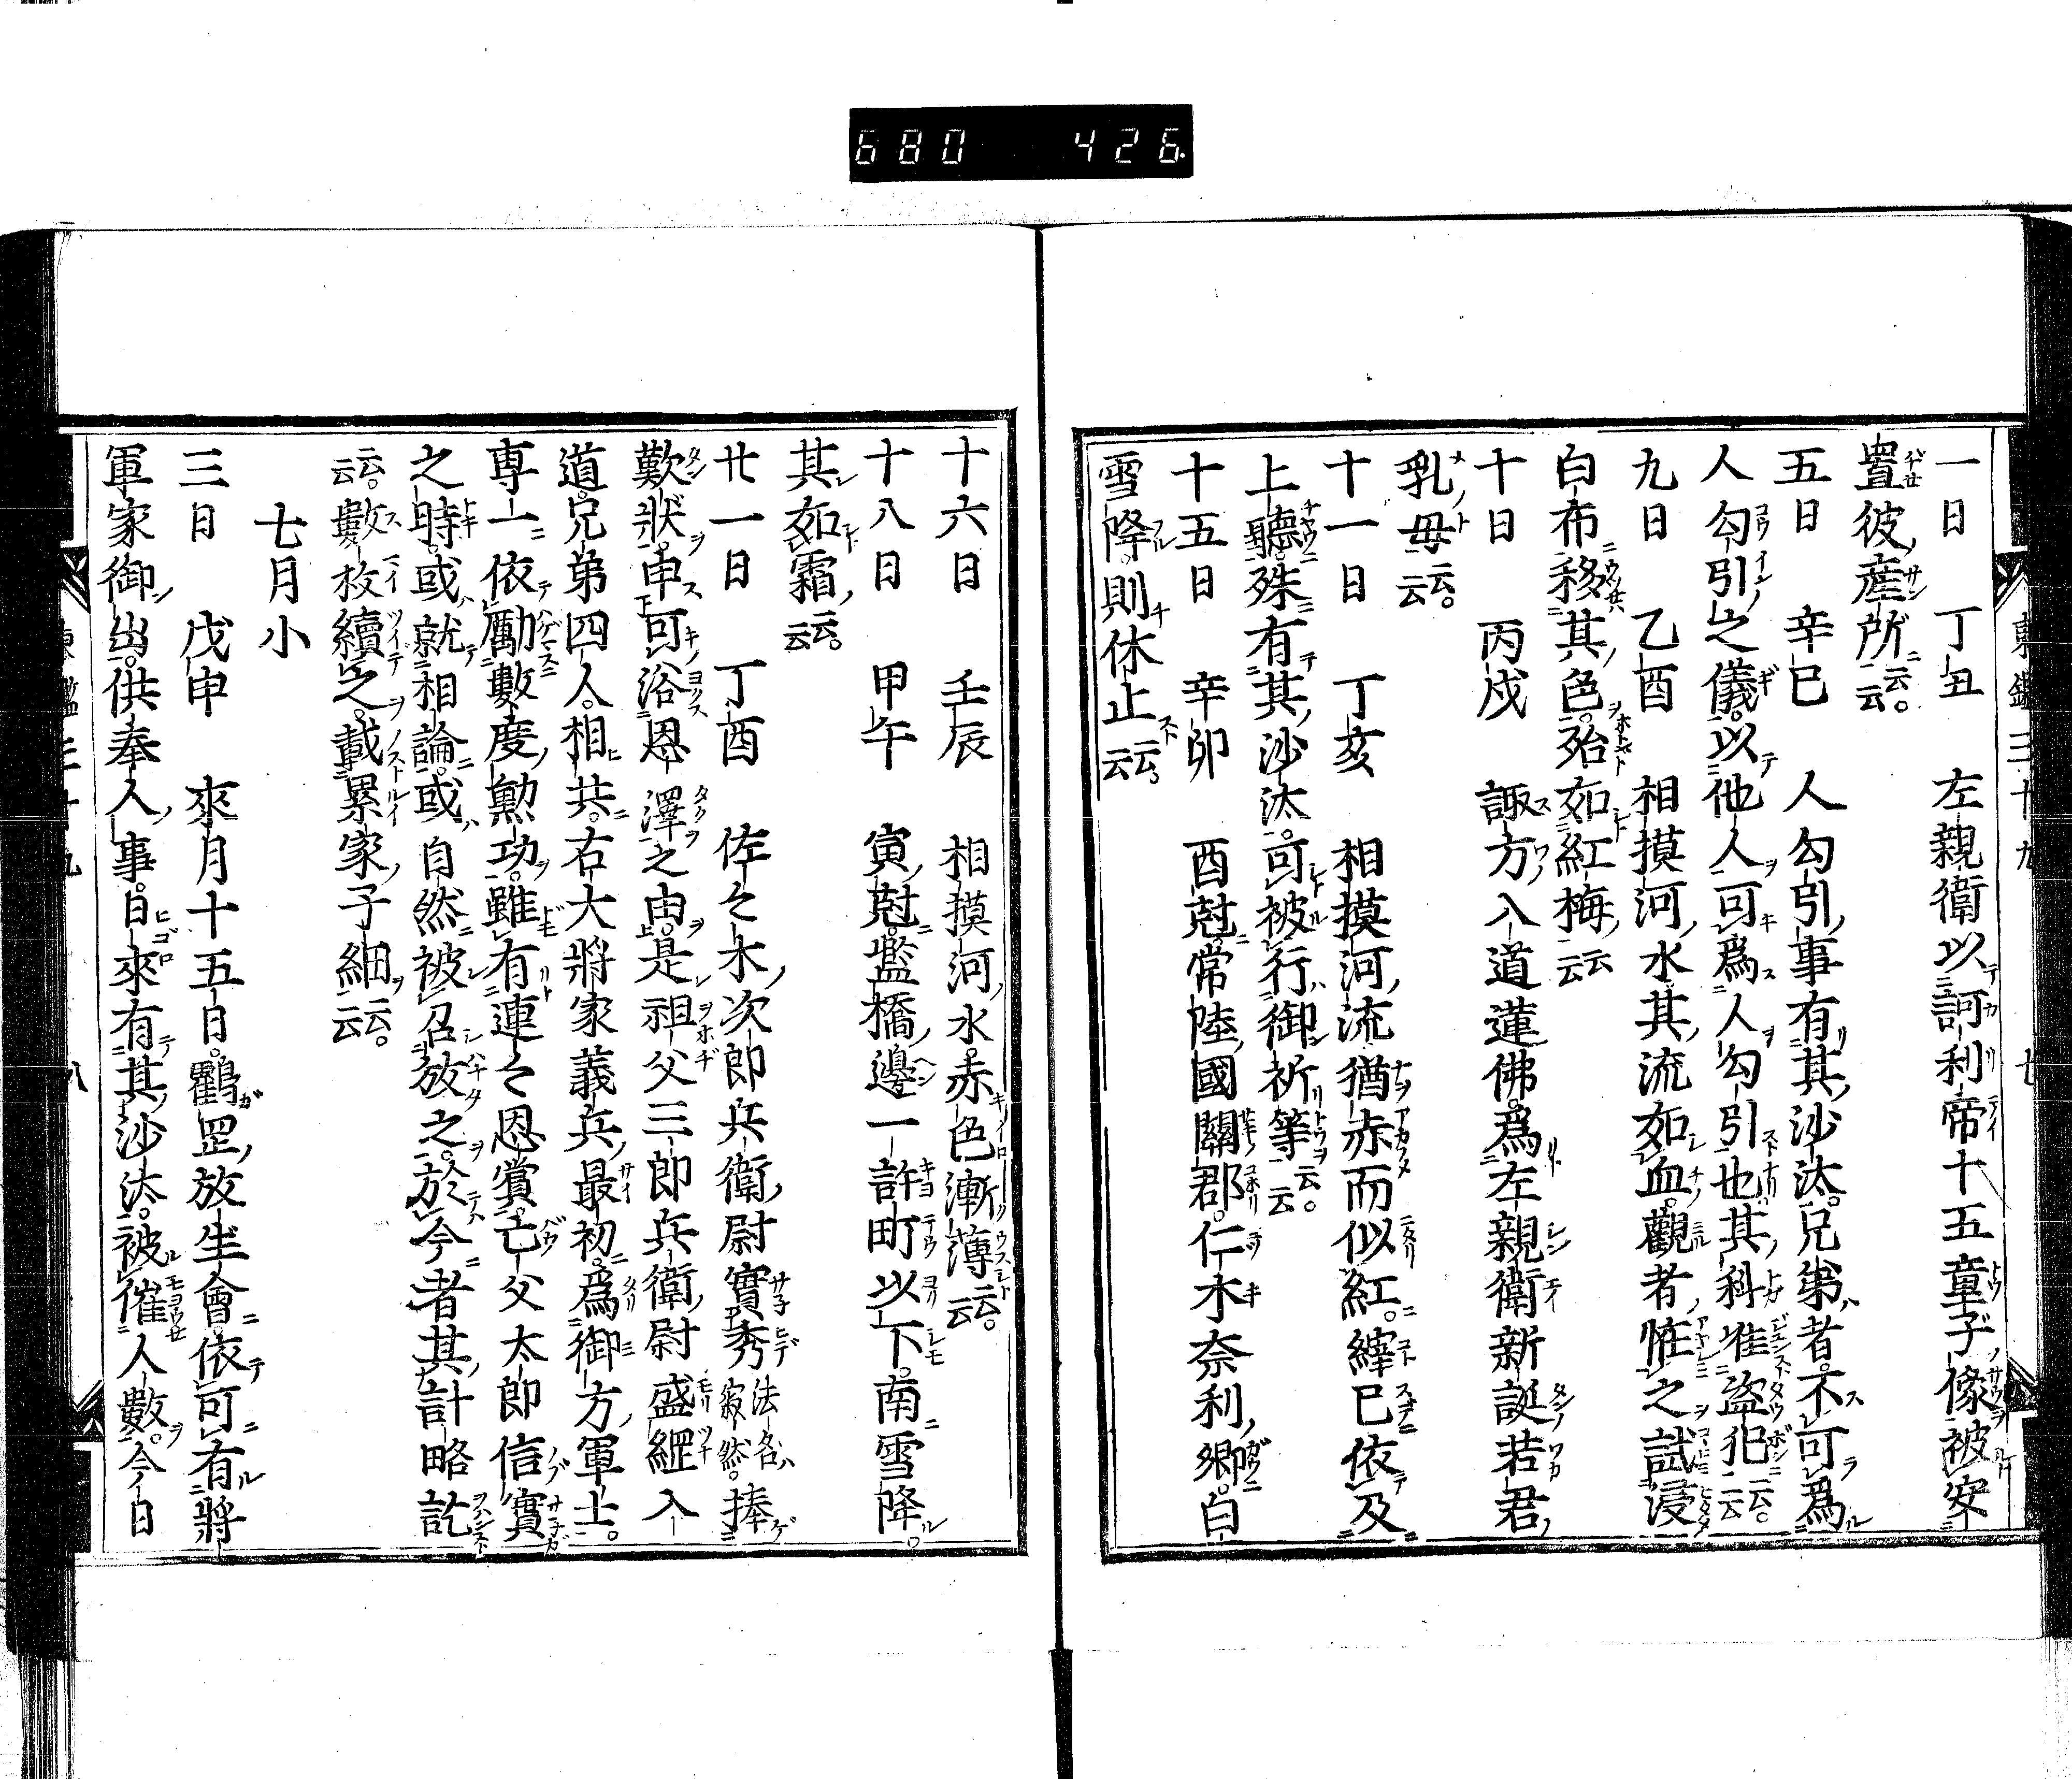 680 426
一日 丁丑 左親衛以訶利帝十五童子像被安
置彼産所云云。
五日 辛巳 人勾引事有其沙汰。兄弟者。不可爲
人勾引之儀。以他人可爲人勾引也其科准盗犯云云。
九日 乙酉 相摸河水其流如血。觀者恠之試浸
白布移其色。殆如紅梅云云
十日 丙戌 諏方入道蓮佛。爲左親衛新誕若君
乳母云云。
十一日 丁亥 相摸河流猶赤而似紅。縡已依及
上聽。殊有其沙汰。可被行御祈等云云。
十五日 辛卯 酉尅。常陸國關郡。仁木奈利郷。白
雪降。則休止云云。
十六日 壬辰 相摸河水。赤色漸薄云云。
十八日 甲午 寅尅。濫橋邊一許町以下。南雪降。
其如霜云云。
廿一日 丁酉 佐々木次郎兵衛尉實秀法名寂然。捧
歎狀。申可浴恩澤之由。是祖父三郎兵衛尉盛綱入
道。兄弟四人。相共。右大將家義兵最初。爲御方軍士。
専一依勵數度勲功。雖有連々恩賞。亡父太郎信實
之時。或就相論。或自然被召放之。於今者其計略訖
云云。數枚續之。載累家子細云云。
七月小
三日 戊申 來月十五日。鶴罡放生會。依可有將
軍家御出。供奉人事。日來有其沙汰。被催人數。今日